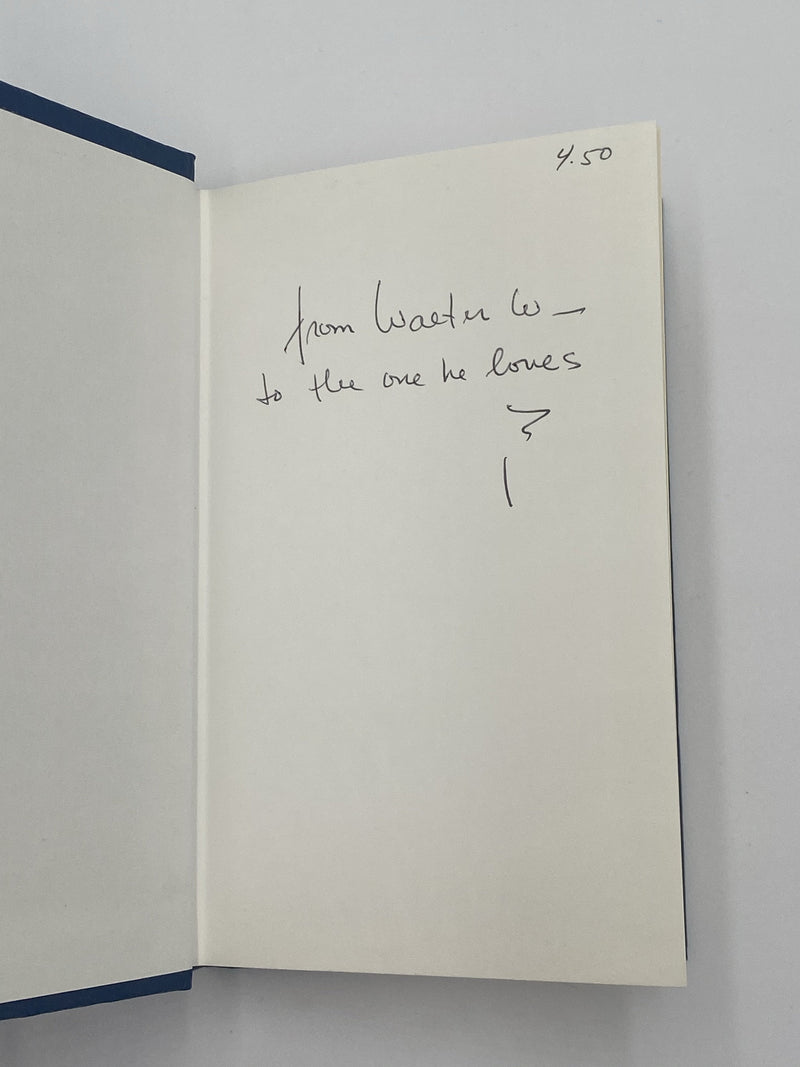 4.50
from Walter W —
to the one he loves